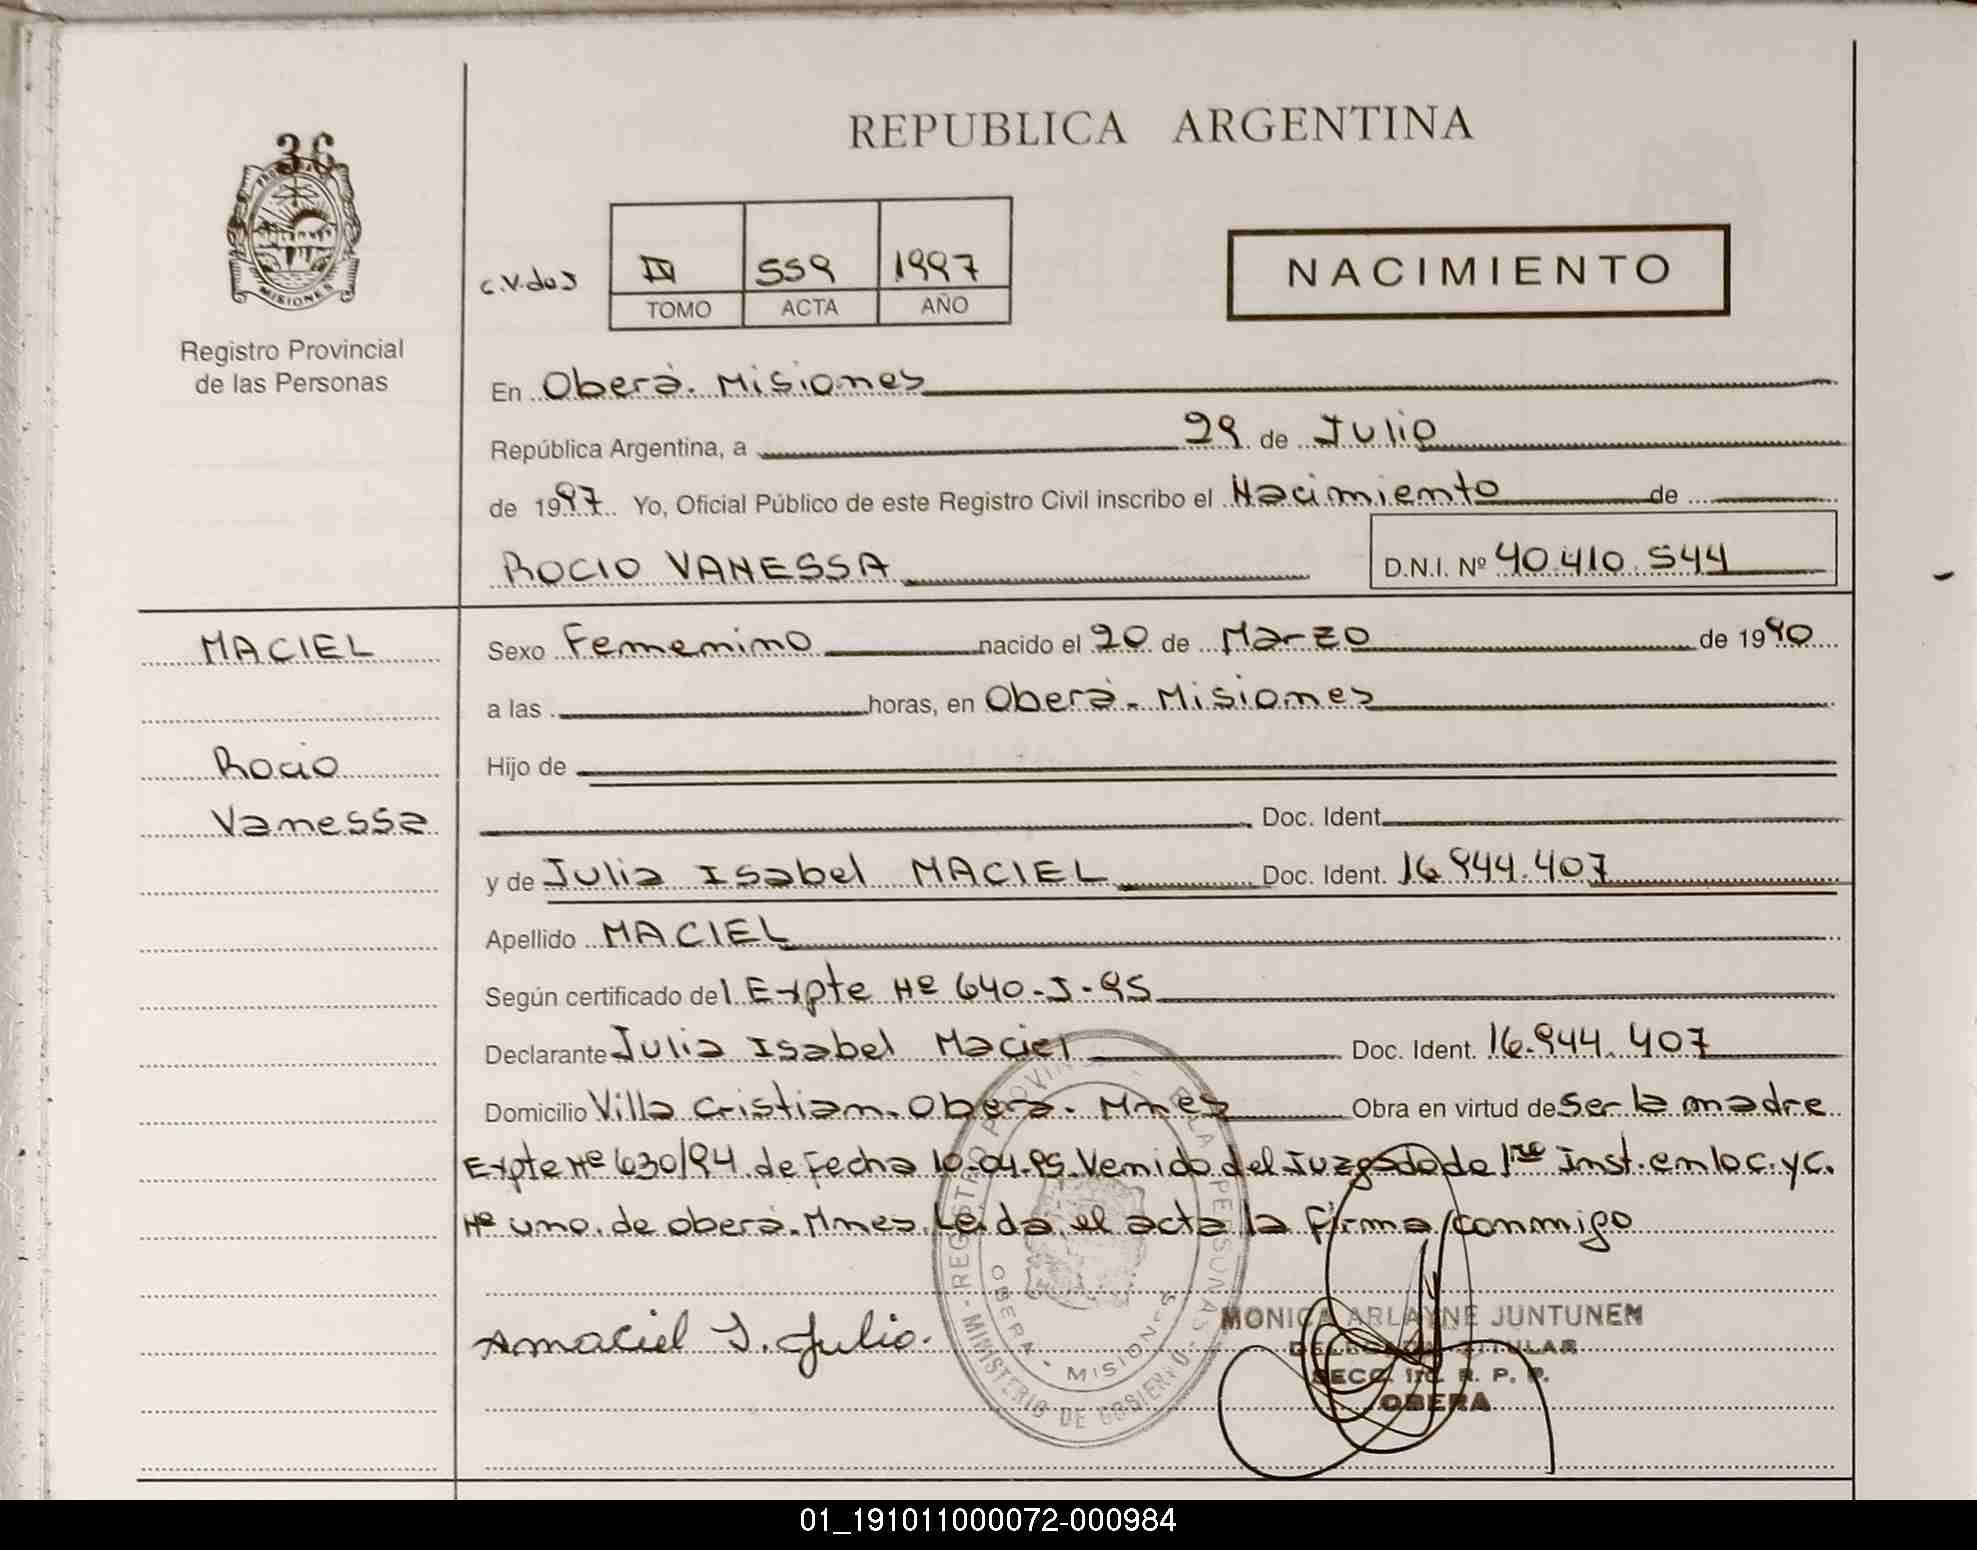 36
REPUBLICA ARGENTINA
MISIONES
Registro Provincial
de las Personas
IV 559 1997
TOMO ACTA AÑO
NACIMIENTO
En Oberá. Misiones
República Argentina, a 29 de Julio
de 1997 Yo, Oficial Público de este Registro Civil inscribo el Nacimiento de
ROCIO VANESSA D.N.I. Nº 40.410.544
MACIEL
Rocio
Vanessa
Sexo Femenino nacido el 20 de Marzo de 1990
a las horas, en Oberá. Misiones
Hijo de
Doc. Ident.
y de Julia Isabel MACIEL Doc. Ident. 16.944.407
Apellido MACIEL
Según certificado del Expte Nº 640-J-95
Declarante Julia Isabel Maciel Doc. Ident. 16.944.407
Domicilio Villa Cristian. Oberá. Mnes Obra en virtud de ser la madre
Expte Nº 630/94 de fecha 10-04-95 Venido del Juzgado de 1ra Inst. en lo C. y C.
Nº uno. de oberá. Mnes. Leida el acta la firma conmigo
Amaciel J. Julio.
REGISTRO PROVINCIAL DE LAS PERSONAS - MINISTERIO DE GOBIERNO -
OBERA - MISIONES
MONICA ARLAYNE JUNTUNEN
DELEGADA TITULAR
SECC. 1ra. R. P. P.
OBERA
01_191011000072-000984